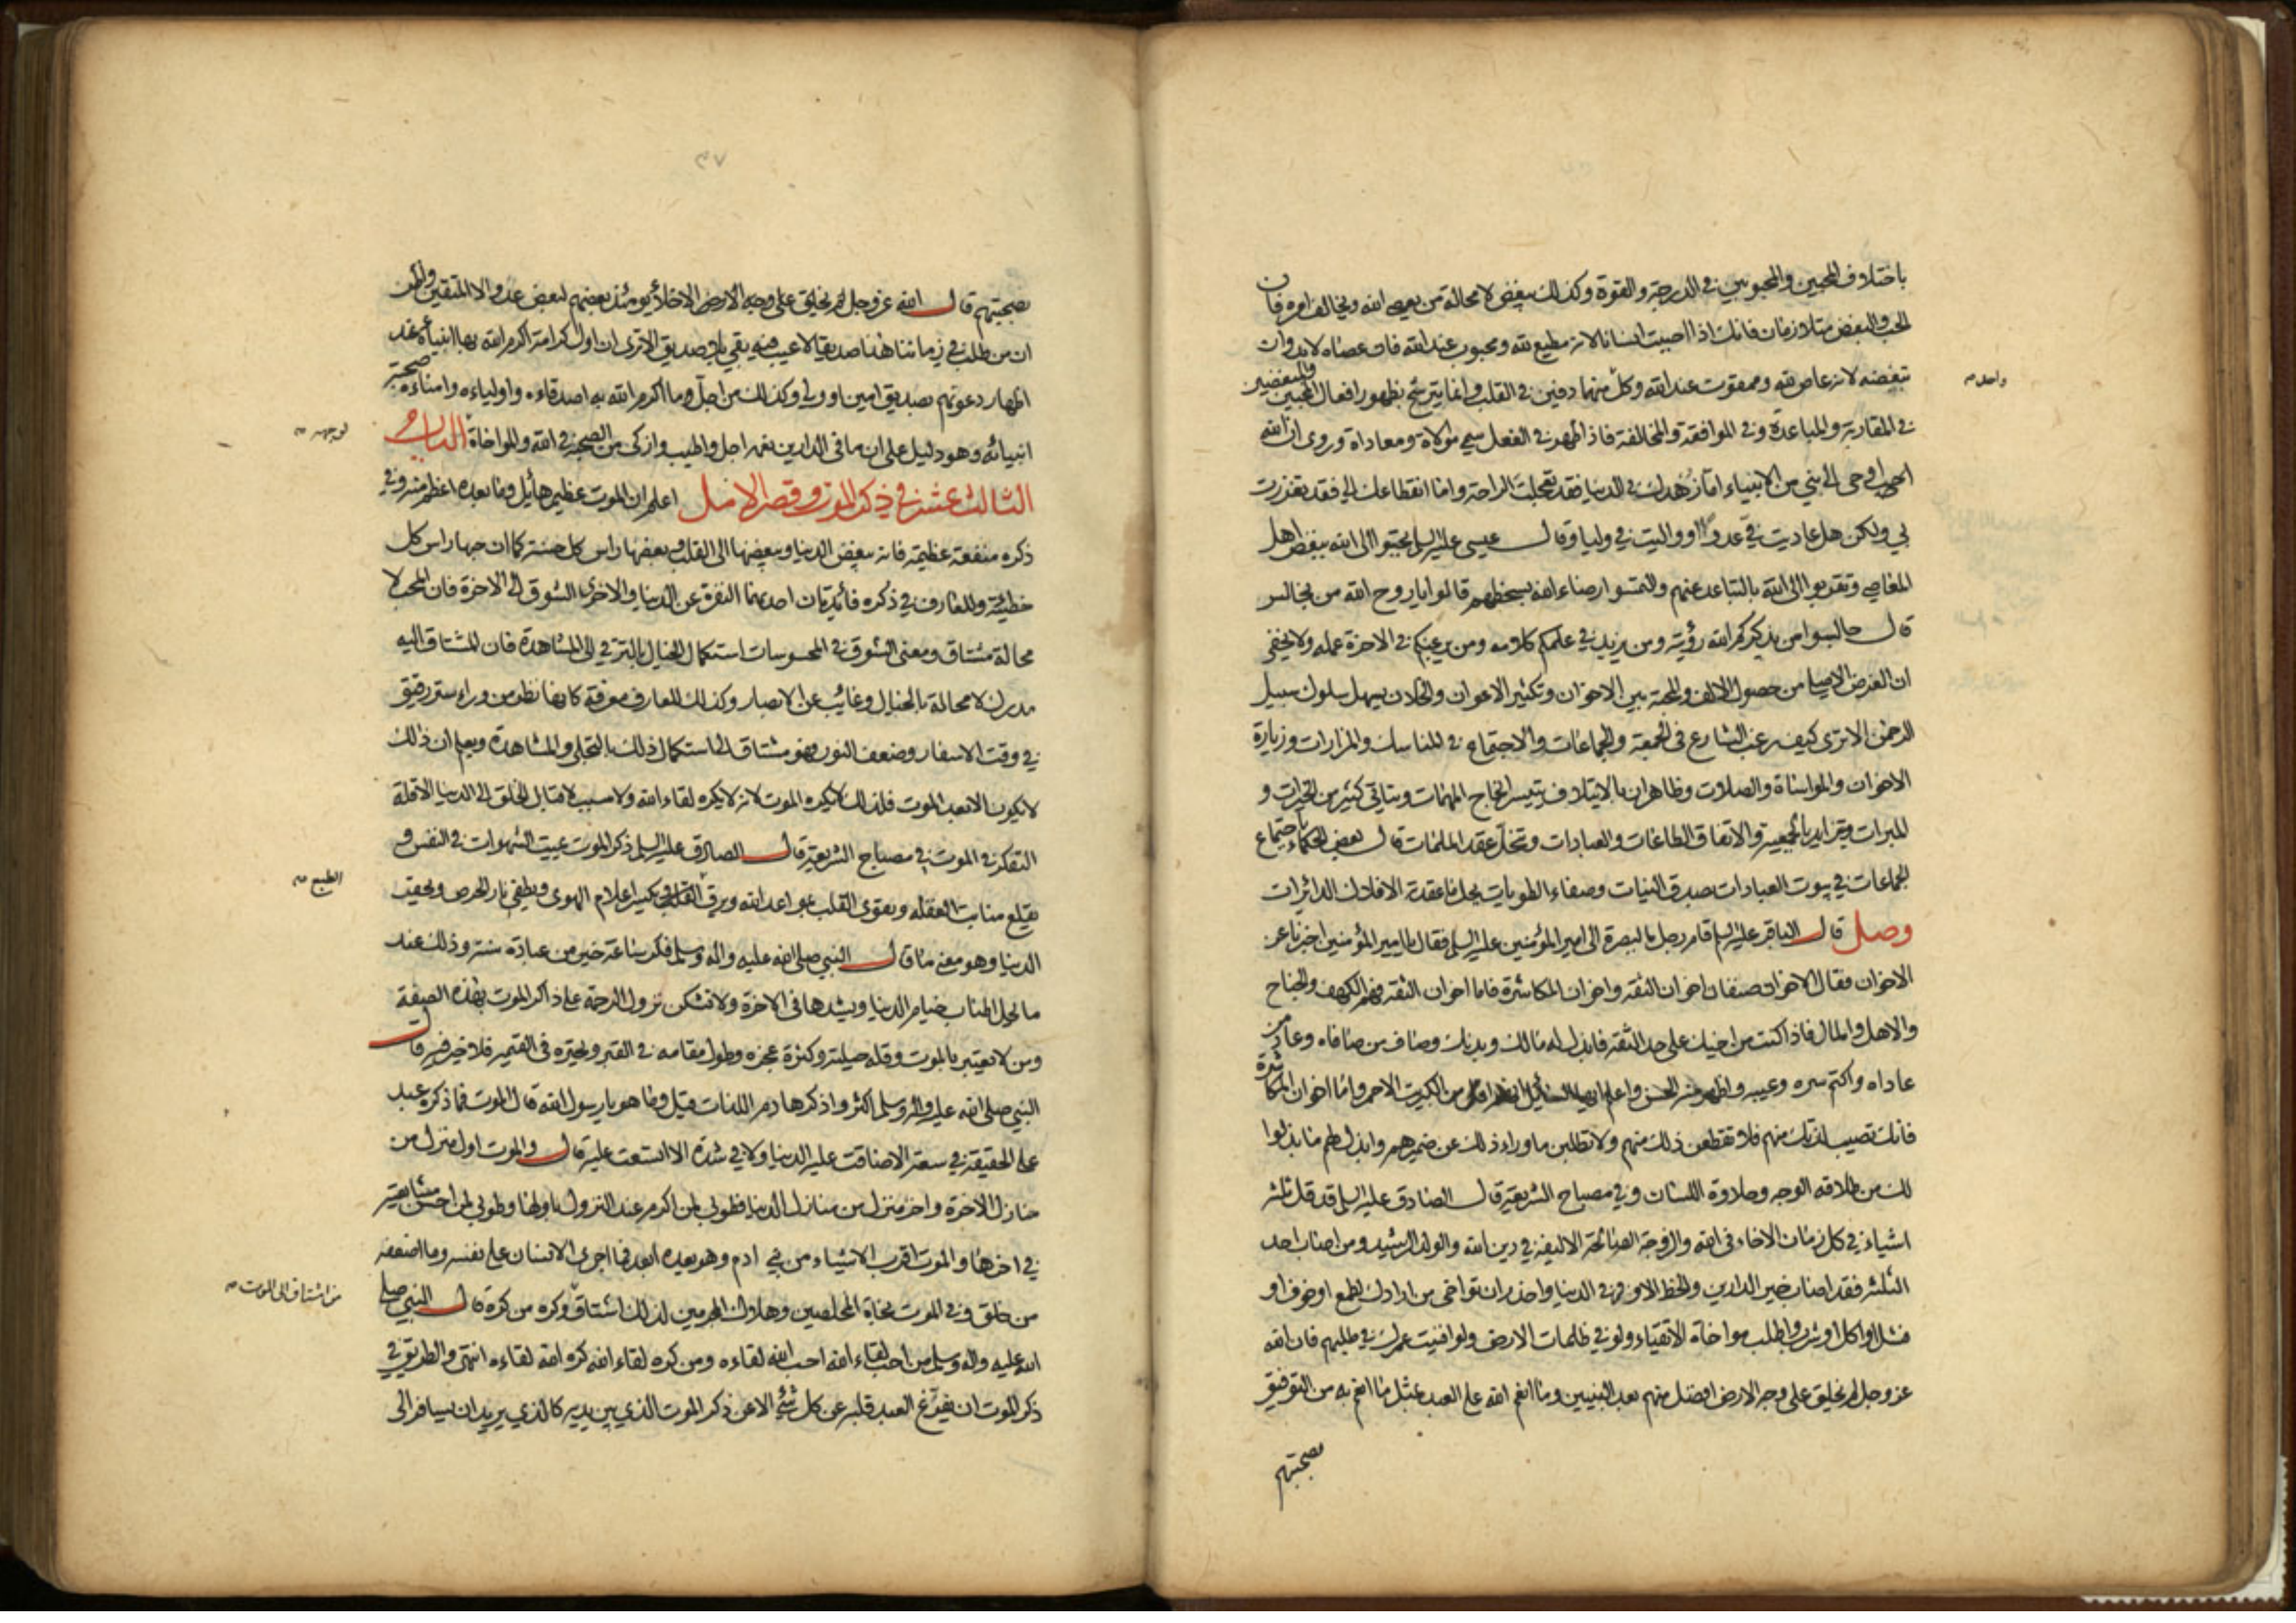 باختلاف المحبين والمحبوبين في الدرجة والقوة وكذلك يبغض لا محالة من يعصي الله ويخالف امره فان
الحب والبغض متلازمان فانك اذا احببت انسانا لانه مطيع لله ومحبوب عند الله فان عصاه لابد وان
تبغضه لانه عاص لله وممقوت عند الله وكل منهما دفين في القلب وانما يترشح بظهور افعال المحبين والمبغضين
واحد
في المقاربة والمباعدة وفي الموافقة والمخالفة فاذا ظهر في الفعل سمي موالاة ومعاداة وروى ان الله
اوحى الى نبي من الانبياء اما زهدك في الدنيا فقد تعجلت الراحة واما انقطاعك الي فقد تعززت
بي ولكن هل عاديت في عدوا او واليت في وليا وقال عيسى عليه السلم تحببوا الى الله ببغض اهل
المعاصي وتقربوا الى الله بالتباعد عنهم والتمسوا رضاء الله بسخطهم قالوا يا روح الله من نجالس
قال جالسوا من يذكركم الله رؤيته ومن يزيد في علمكم كلامه ومن يرغبكم في الاخرة عمله ولا يخفى
ان الغرض الاصلي من حصول الالف والمحبة بين الاخوان وتكثير الاعوان والخلان يسهل سلوك سبيل
الرحمن الا ترى كيف رغب الشارع في الجمعة والجماعات والاجتماع في المناسك والمزارات وزيارة
الاخوان والمواساة والصلات وظاهر ان بالايتلاف يتيسر انجاح المهمات ويتاتى كثير من الخيرات و
المبرات ويتزايد بالجمعية والاتفاق الطاعات والعبادات وتنحل عقد الملمات قال بعض الحكماء باجتماع
الجماعات في بيوت العبادات بصدق النيات وصفاء الطويات يحل ما عقدته الافلاك الدائرات
وصل قال الباقر عليه السلم قام رجل بالبصرة الى امير المؤمنين عليه السلم فقال يا امير المؤمنين اخبرنا عن
الاخوان فقال الاخوان صنفان اخوان الثقة واخوان المكاشرة فاما اخوان الثقة فهم الكهف والجناح
والاهل والمال فاذا كنت من اخيك على حد الثقة فابذل له مالك وبدنك وصاف من صافاه وعاد من
عاداه واكتم سره وعيبه واظهر منه الحسن واعلم ايها السائل انهم اقل من الكبريت الاحمر واما اخوان المكاشرة
فانك تصيب لذتك منهم فلا تقطعن ذلك منهم ولا تطلبن ما وراء ذلك عن ضميرهم وابذل لهم ما بذلوا
لك من طلاقة الوجه وحلاوة اللسان وفي مصباح الشريعة قال الصادق عليه السلم قد قل ثلثة
اشياء في كل زمان الاخاء في الله والزوجة الصالحة الاليفة في دين الله والولد الرشيد ومن اصاب احد
الثلثة فقد اصاب خير الدارين والحظ الاوفر في الدنيا واحذر ان تواخي من ارادك لطمع او خوف او
فشل او اكل او شرب واطلب مواخاة الاتقياء ولو في ظلمات الارض ولو افنيت عمرك في طلبهم فان الله
عز وجل لم يخلق على وجه الارض افضل منهم بعد النبيين وما انعم الله على العبد بمثل ما انعم به من التوفيق
بصحبتهم
٣٧
بصحبتهم قال الله عز وجل الاخلاء يومئذ بعضهم لبعض عدو الا المتقين واظن
ان من طلب في زماننا هذا صديقا بلا عيب بقي بلا صديق الا ترى ان اول كرامة اكرم الله بها انبياءه عند
اظهار دعوتهم تصديق امين او ولي وكذلك من اجل ما اكرم الله به اصدقاءه واولياءه وامناءه صحبة
انبيائه وهو دليل على ان ما في الدارين نعمة اجل واطيب وازكى من الصحبة في الله والمواخاة الباب
لوجهه
الثالث عشر في ذكر الموت وقصر الامل اعلم ان الموت عظيم هائل وما بعده اعظم منه وفي
ذكره منفعة عظيمة فانه يبغض الدنيا ويبغضها الى القلب وبغضها راس كل حسنة كما ان حبها راس كل
خطيئة وللعارف في ذكره فائدتان احديهما النفرة عن الدنيا والاخرى الشوق الى الاخرة فان المحب لا
محالة مشتاق ومعنى الشوق في المحسوسات استكمال الخيال بالترقي الى المشاهدة فان المشتاق اليه
مدرك لا محالة بالخيال وغائب عن الابصار وكذلك للعارف معرفة كانها نظر من وراء ستر رقيق
في وقت الاسفار وضعف النور فهو مشتاق الى استكمال ذلك بالتجلي والمشاهدة ويعلم ان ذلك
لا يكون الا بعد الموت فلذلك لا يكره الموت لانه لا يكره لقاء الله ولا سبب لاقبال الخلق الى الدنيا الا قلة
التفكر في الموت في مصباح الشريعة قال الصادق عليه السلم ذكر الموت يميت الشهوات في النفس و
يقلع منابت الغفلة ويقوي القلب بمواعد الله ويرق القلب ويكسر اعلام الهوى ويطفي نار الحرص ويحقر
الطبع
الدنيا وهو معنى ما قال النبي صلى الله عليه واله وسلم فكر ساعة خير من عبادة سنة وذلك عند
ما يحل اطناب خيام الدنيا ويشدها في الاخرة ولا تشكن نزول الرحمة على ذاكر الموت بهذه الصفة
ومن لا يعتبر بالموت وقلة حيلته وكثرة عجزه وطول مقامه في القبر وتحيره في القيمة فلا خير فيه قال
النبي صلى الله عليه واله وسلم اكثروا ذكر هادم اللذات قيل وما هو يا رسول الله قال الموت فما ذكره عبد
على الحقيقة في سعة الا ضاقت عليه الدنيا ولا في شدة الا اتسعت عليه قال والموت اول منزل من
منازل الاخرة واخر منزل من منازل الدنيا فطوبى لمن اكرم عند النزول باولها وطوبى لمن احسن مشايعته
في اخرها والموت اقرب الاشياء من بني ادم وهو يعده ابعد فما اجرى الانسان على نفسه وما اضعفه
من خلق وفي الموت نجاة المخلصين وهلاك المجرمين لذلك اشتاق وكره من كره قال النبي صلى
من اشتاق الى الموت
الله عليه واله وسلم من احب لقاء الله احب الله لقاءه ومن كره لقاء الله كره الله لقاءه انتهى والطريق في
ذكر الموت ان يفرغ العبد قلبه عن كل شئ الا عن ذكر الموت الذي بين يديه كالذي يريد ان يسافر الى